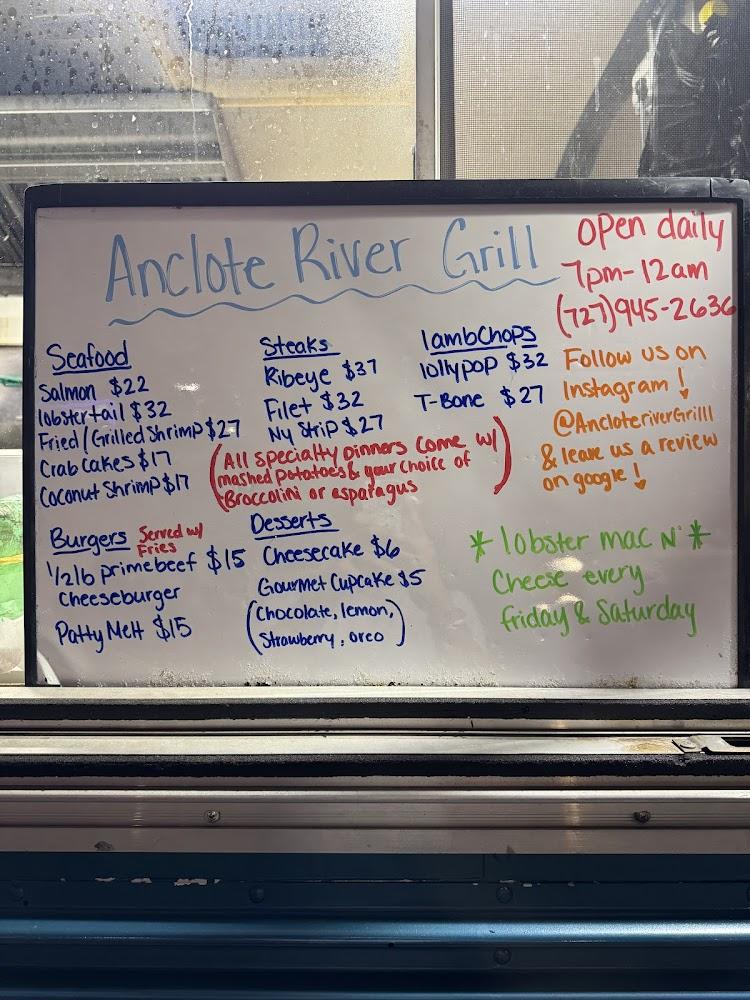 Anclote River Grill
Open daily
7pm-12am
(727)945-2636
Seafood
Salmon $22
lobster tail $32
Fried/Grilled Shrimp $27
Crab Cakes $17
Coconut Shrimp $17
Steaks
Ribeye $37
Filet $32
NY Strip $27
lambChops
lollypop $32
T-Bone $27
(All specialty Dinners come w/
mashed potatoes & your choice of
Broccolini or asparagus)
Follow us on
Instagram!
@AncloteriverGrill
& leave us a review
on google!
Burgers Served w/
Fries
1/2lb primebeef $15
Cheeseburger
Patty Melt $15
Desserts
Cheesecake $6
Gourmet Cupcake $5
(Chocolate, lemon,
Strawberry, oreo)
* lobster mac N' *
Cheese every
friday & Saturday